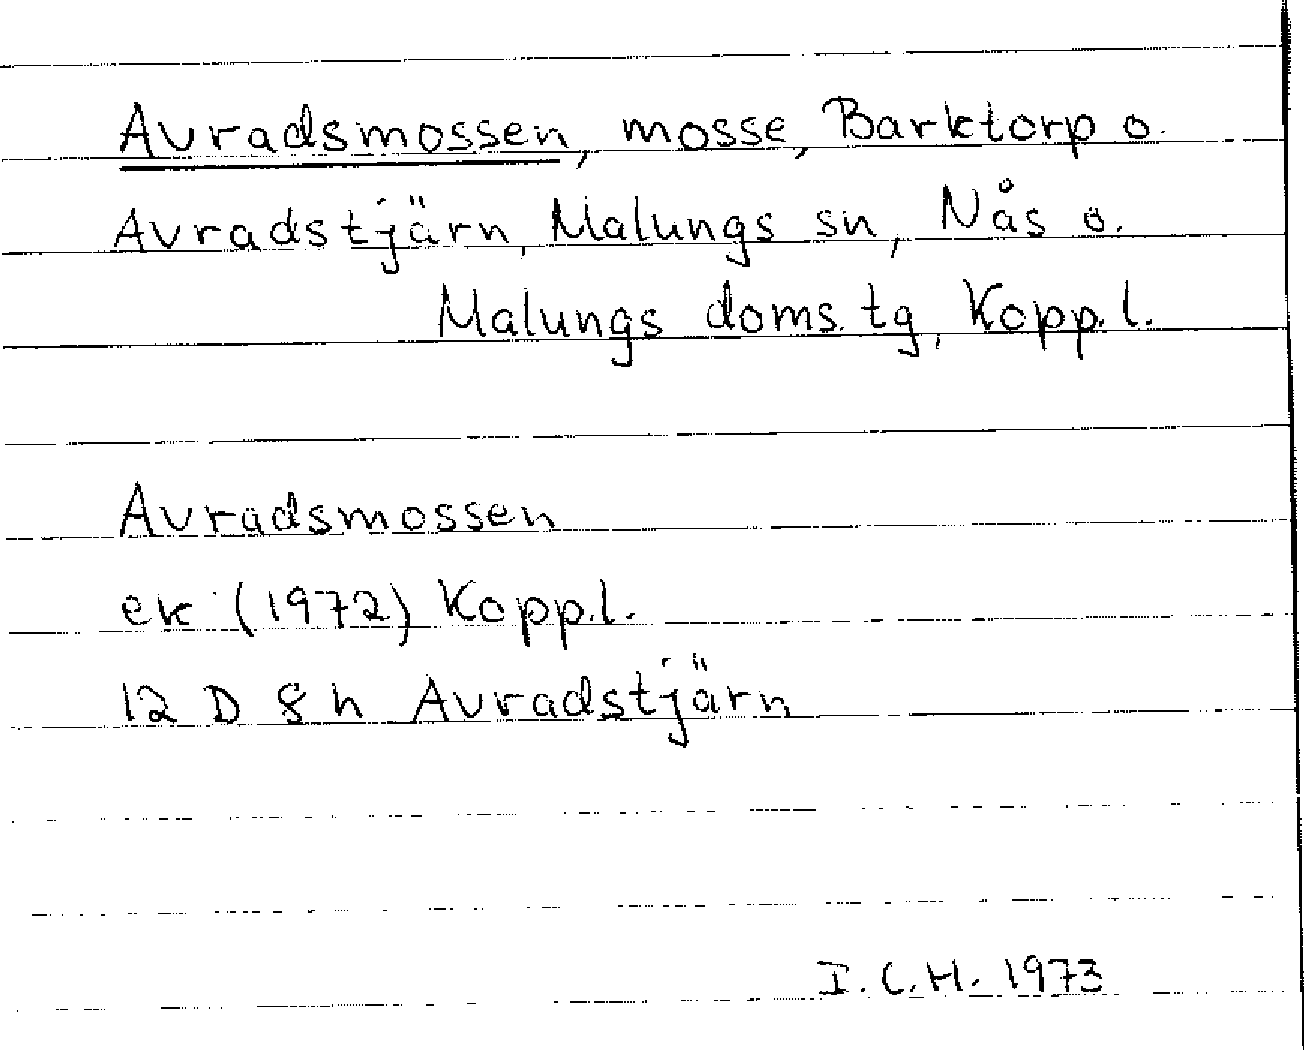 Avradsmossen, mosse, Barktorp o.
Avradstjärn, Malungs sn, Nås o.
Malungs doms.tg, Kopp.l.
Avradsmossen
ek (1972) Kopp.l.
12 D 8 h Avradstjärn
I.C.H. 1973